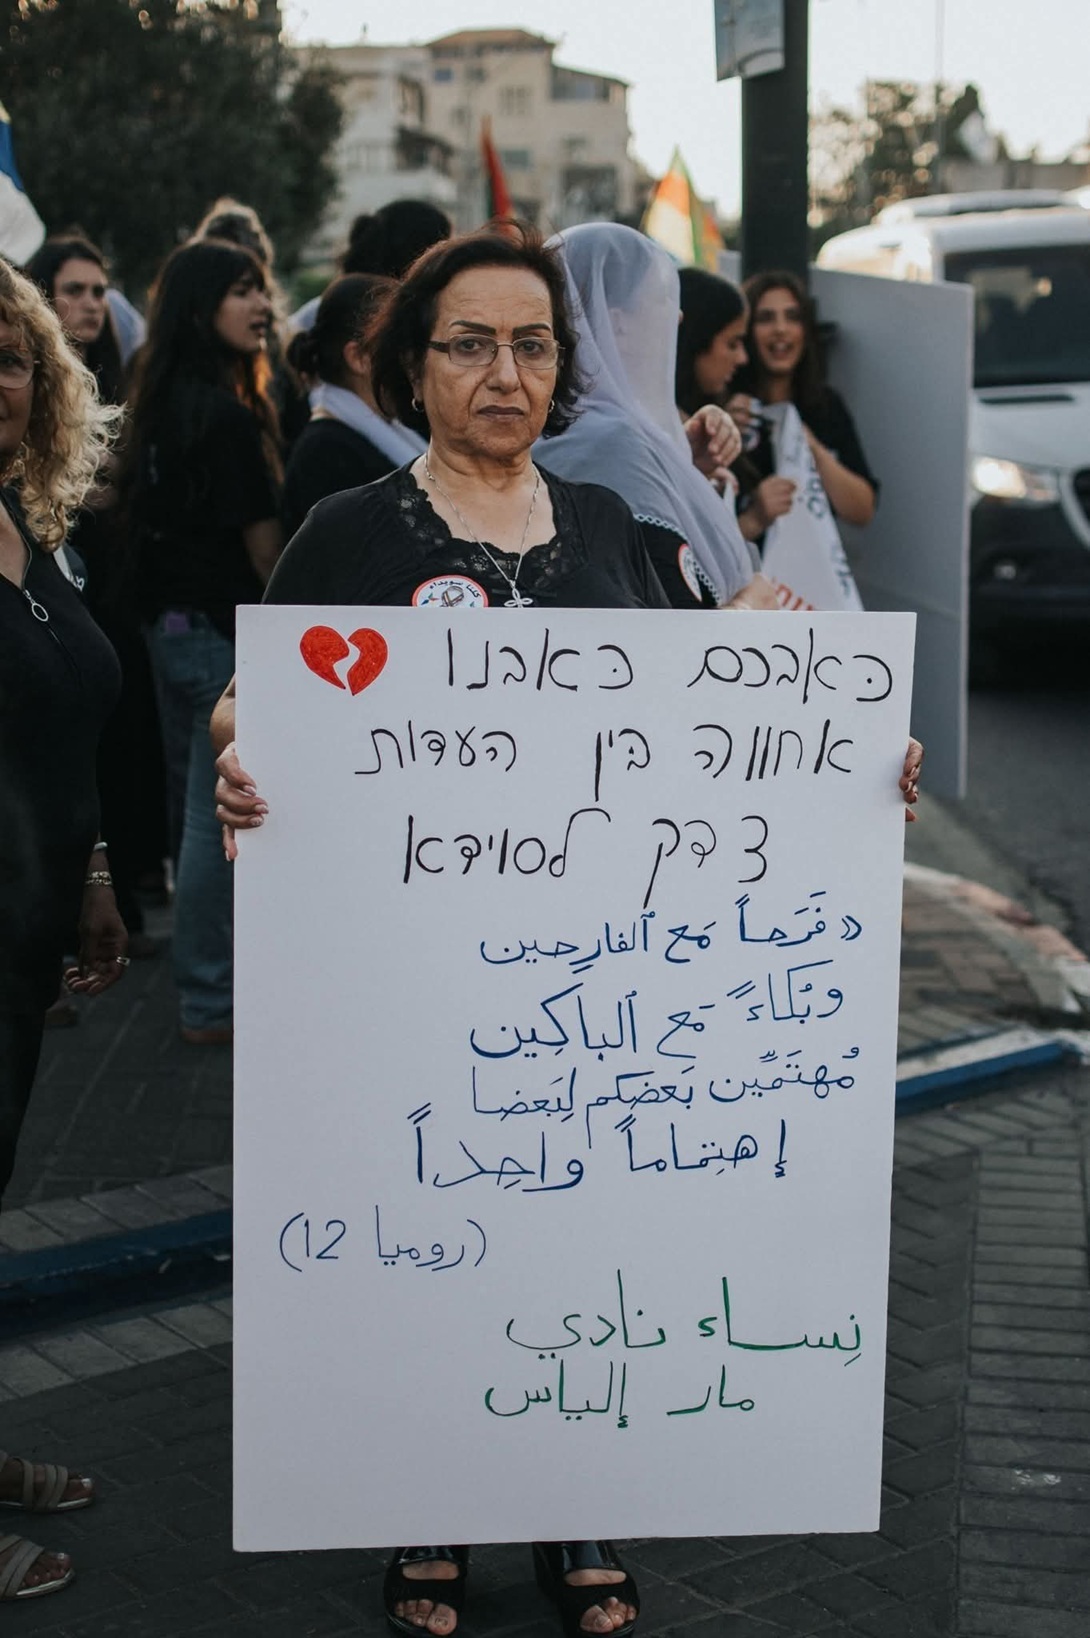 כּאבכם כּאבנו
אחווה בּין העדות
צדק לסוידא
« فَرَحاً مَع ٱلفارِحين
وبُكاءً مَع ٱلباكِين
مُهتَمِّين بَعضكم لِبَعضا
إهتِماماً واحِداً
(روميا 12)
نِساء نادي
مار إلياس
كلنا سويداء